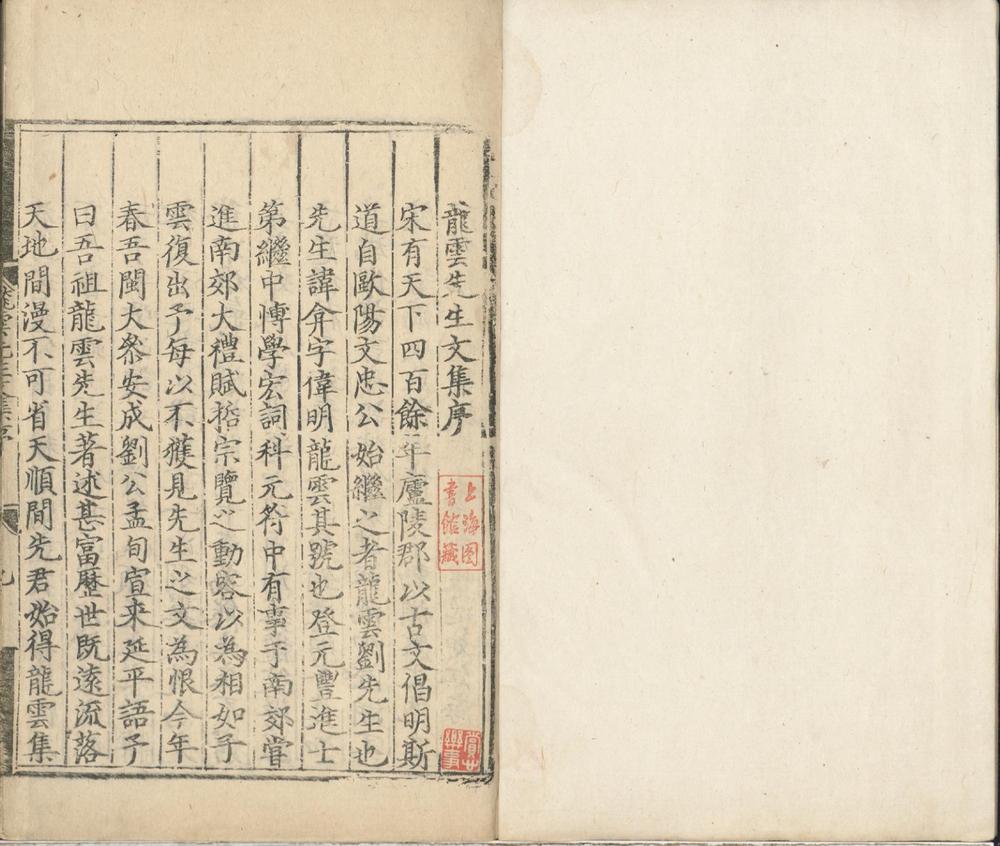 龍雲先生文集序
宋有天下四百餘年廬陵郡以古文倡明斯
道自歐陽文忠公始繼之者龍雲劉先生也
先生諱弇字偉明龍雲其號也登元豐進士
第繼中博學宏詞科元符中有事于南郊嘗
進南郊大禮賦哲宗覽之動容以為相如子
雲復出予每以不獲見先生之文為恨今年
春吾閩大叅安成劉公孟旬宣来延平語予
曰吾祖龍雲先生著述甚富歷世既遠流落
天地間漫不可省天順間先君始得龍雲集
上海图
書館藏